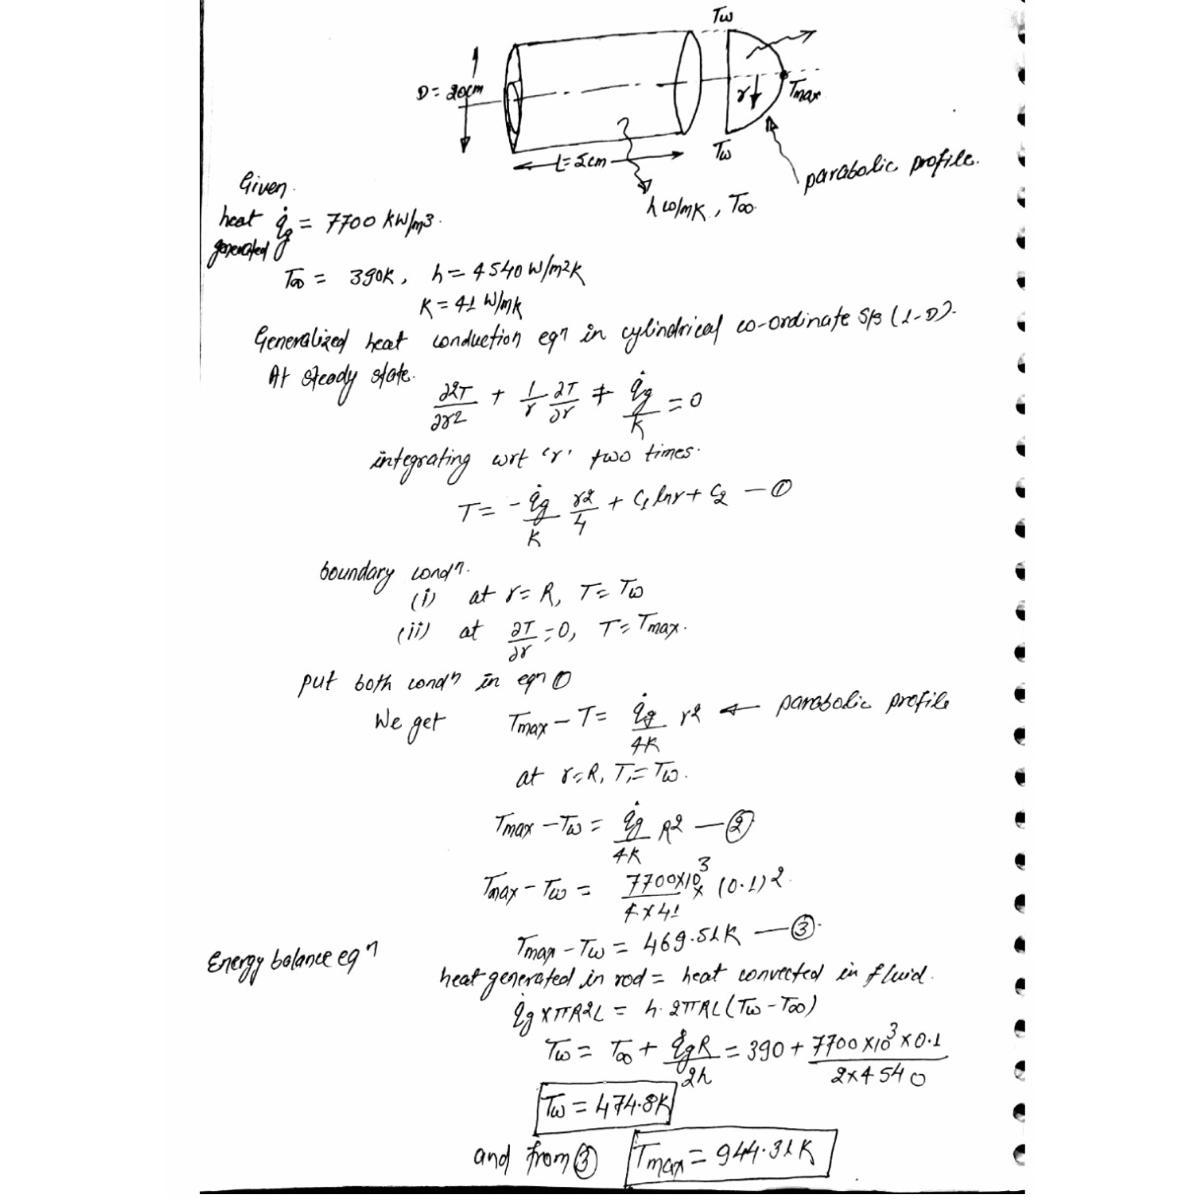 Tω
D= 20cm
r Tmax
L=5cm
Tω
parabolic profile.
h ω/mK , T∞
Given.
heat generated q̇g = 7700 kW/m3.
T∞ = 390K, h= 4540 W/m2K
K= 41 W/mK
Generalized heat conduction eqn in cylindrical co-ordinate S/s (1-D).
At steady state.
∂2T/∂r2 + 1/r ∂T/∂r + q̇g/K = 0
integrating wrt 'r' two times.
T= - q̇g/K r2/4 + C1 lnr + C2 — ①
boundary condn.
(i) at r= R, T= Tω
(ii) at ∂T/∂r =0, T= Tmax.
put both condn in eqn ①
We get Tmax - T = q̇g/4K r2 ← parabolic profile
at r=R, T= Tω.
Tmax - Tω = q̇g/4K R2 — ②
Tmax - Tω = 7700×10^3 × (0.1)2/4×41
Tmax - Tω = 469.51K — ③.
Energy balance eqn
heat generated in rod = heat convected in fluid.
q̇g × πR2L = h. 2πRL (Tω - T∞)
Tω = T∞ + q̇gR/2h = 390 + 7700×10^3×0.1/2×4540
Tω = 474.8K
and from ③ Tmax = 944.31K